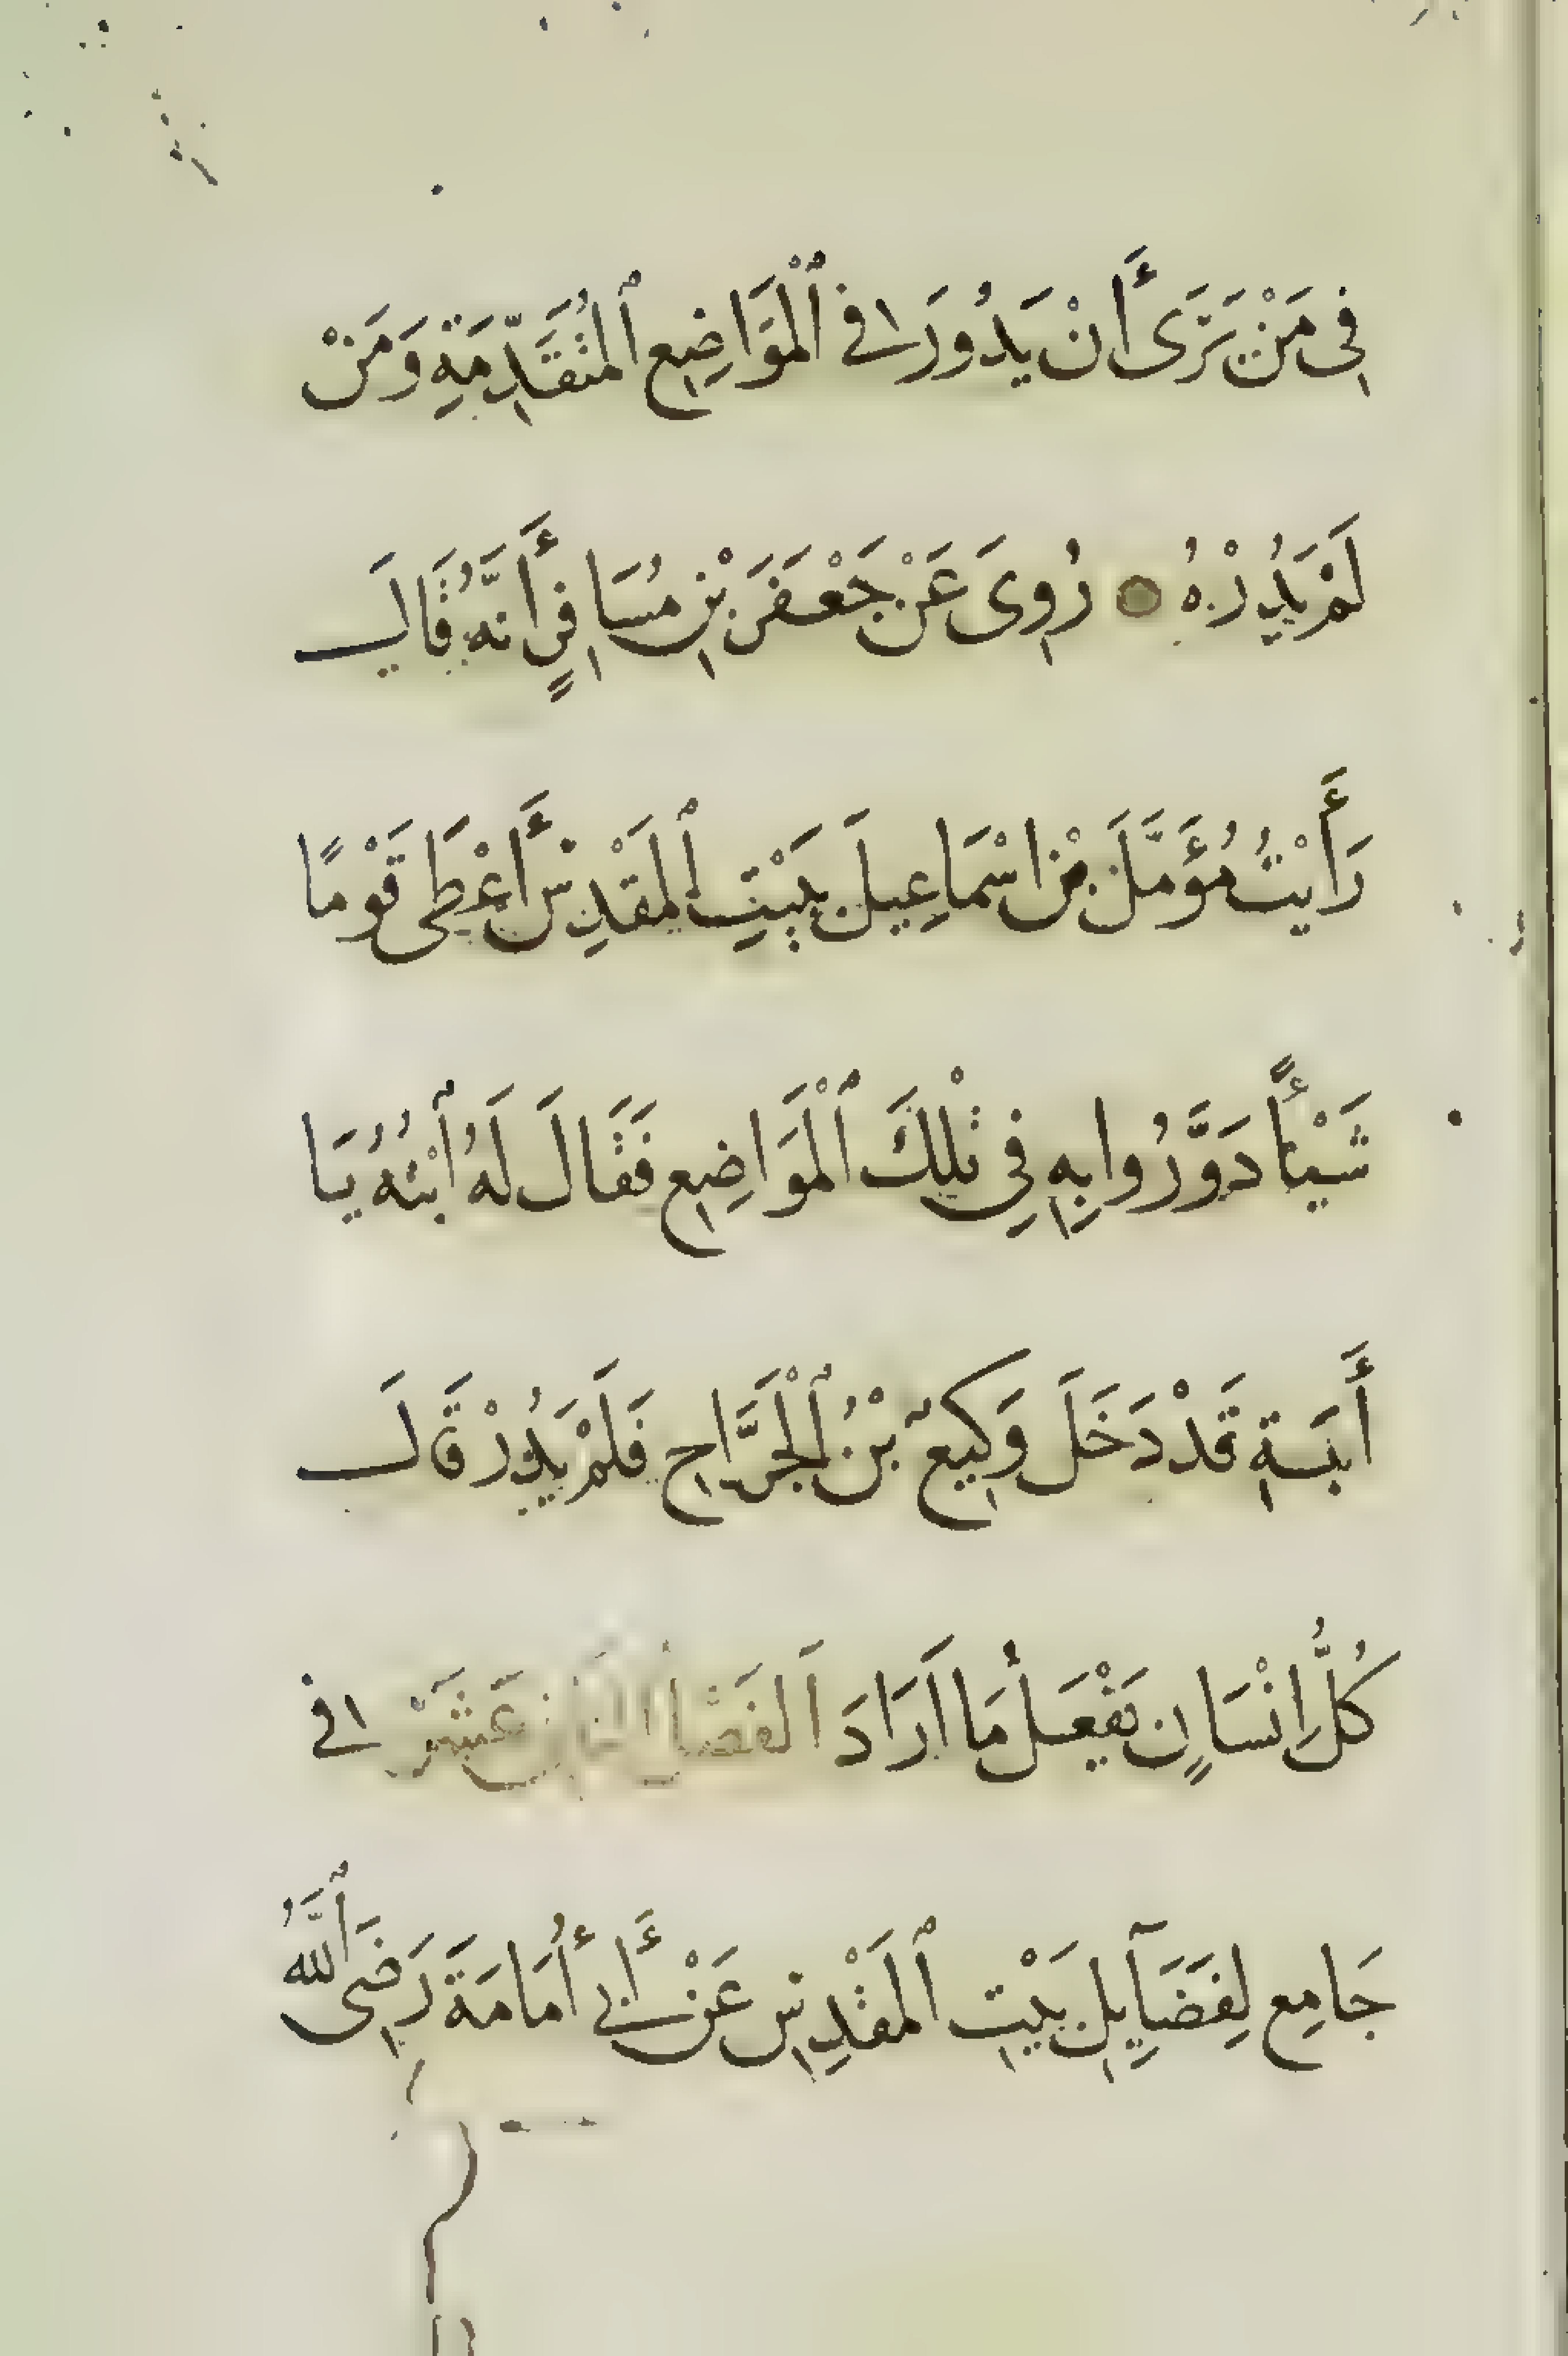 فِى مَنْ يَرَى أَنْ يَدُورَ فِي ٱلْمَوَاضِعِ ٱلْمُتَقَدِّمَةِ وَمَنْ
لَمْ يَدُرْهُ رُوِىَ عَنْ جَعْفَرَ بْنِ مُسَافِرٍ أَنَّهُ قَالَ
رَأَيْتُ مُؤَمَّلَ بْنَ اسْمَاعِيلَ بِبَيْتِ ٱلمَقْدِسِ أَعْطَى قَوْمًا
شَيْئًا دَوَّرُوا بِهِ فِي تِلْكَ ٱلْمَوَاضِعِ فَقَالَ لَهُ ٱبْنُهُ يَا
أَبَةِ قَدْ دَخَلَ وَكِيعُ بْنُ ٱلْجَرَّاحِ فَلَمْ يَدُرْ قَالَ
كُلُّ اِنْسَانٍ يَفْعَلُ مَا اَرَادَ اَلفَصْلُ عَشَرَ فِي
جَامِعٍ لِفَضَآيِلِ بَيْتِ ٱلمَقْدِسِ عَنْ أَبِي أُمَامَةَ رَضِىَ ٱللَّهُ